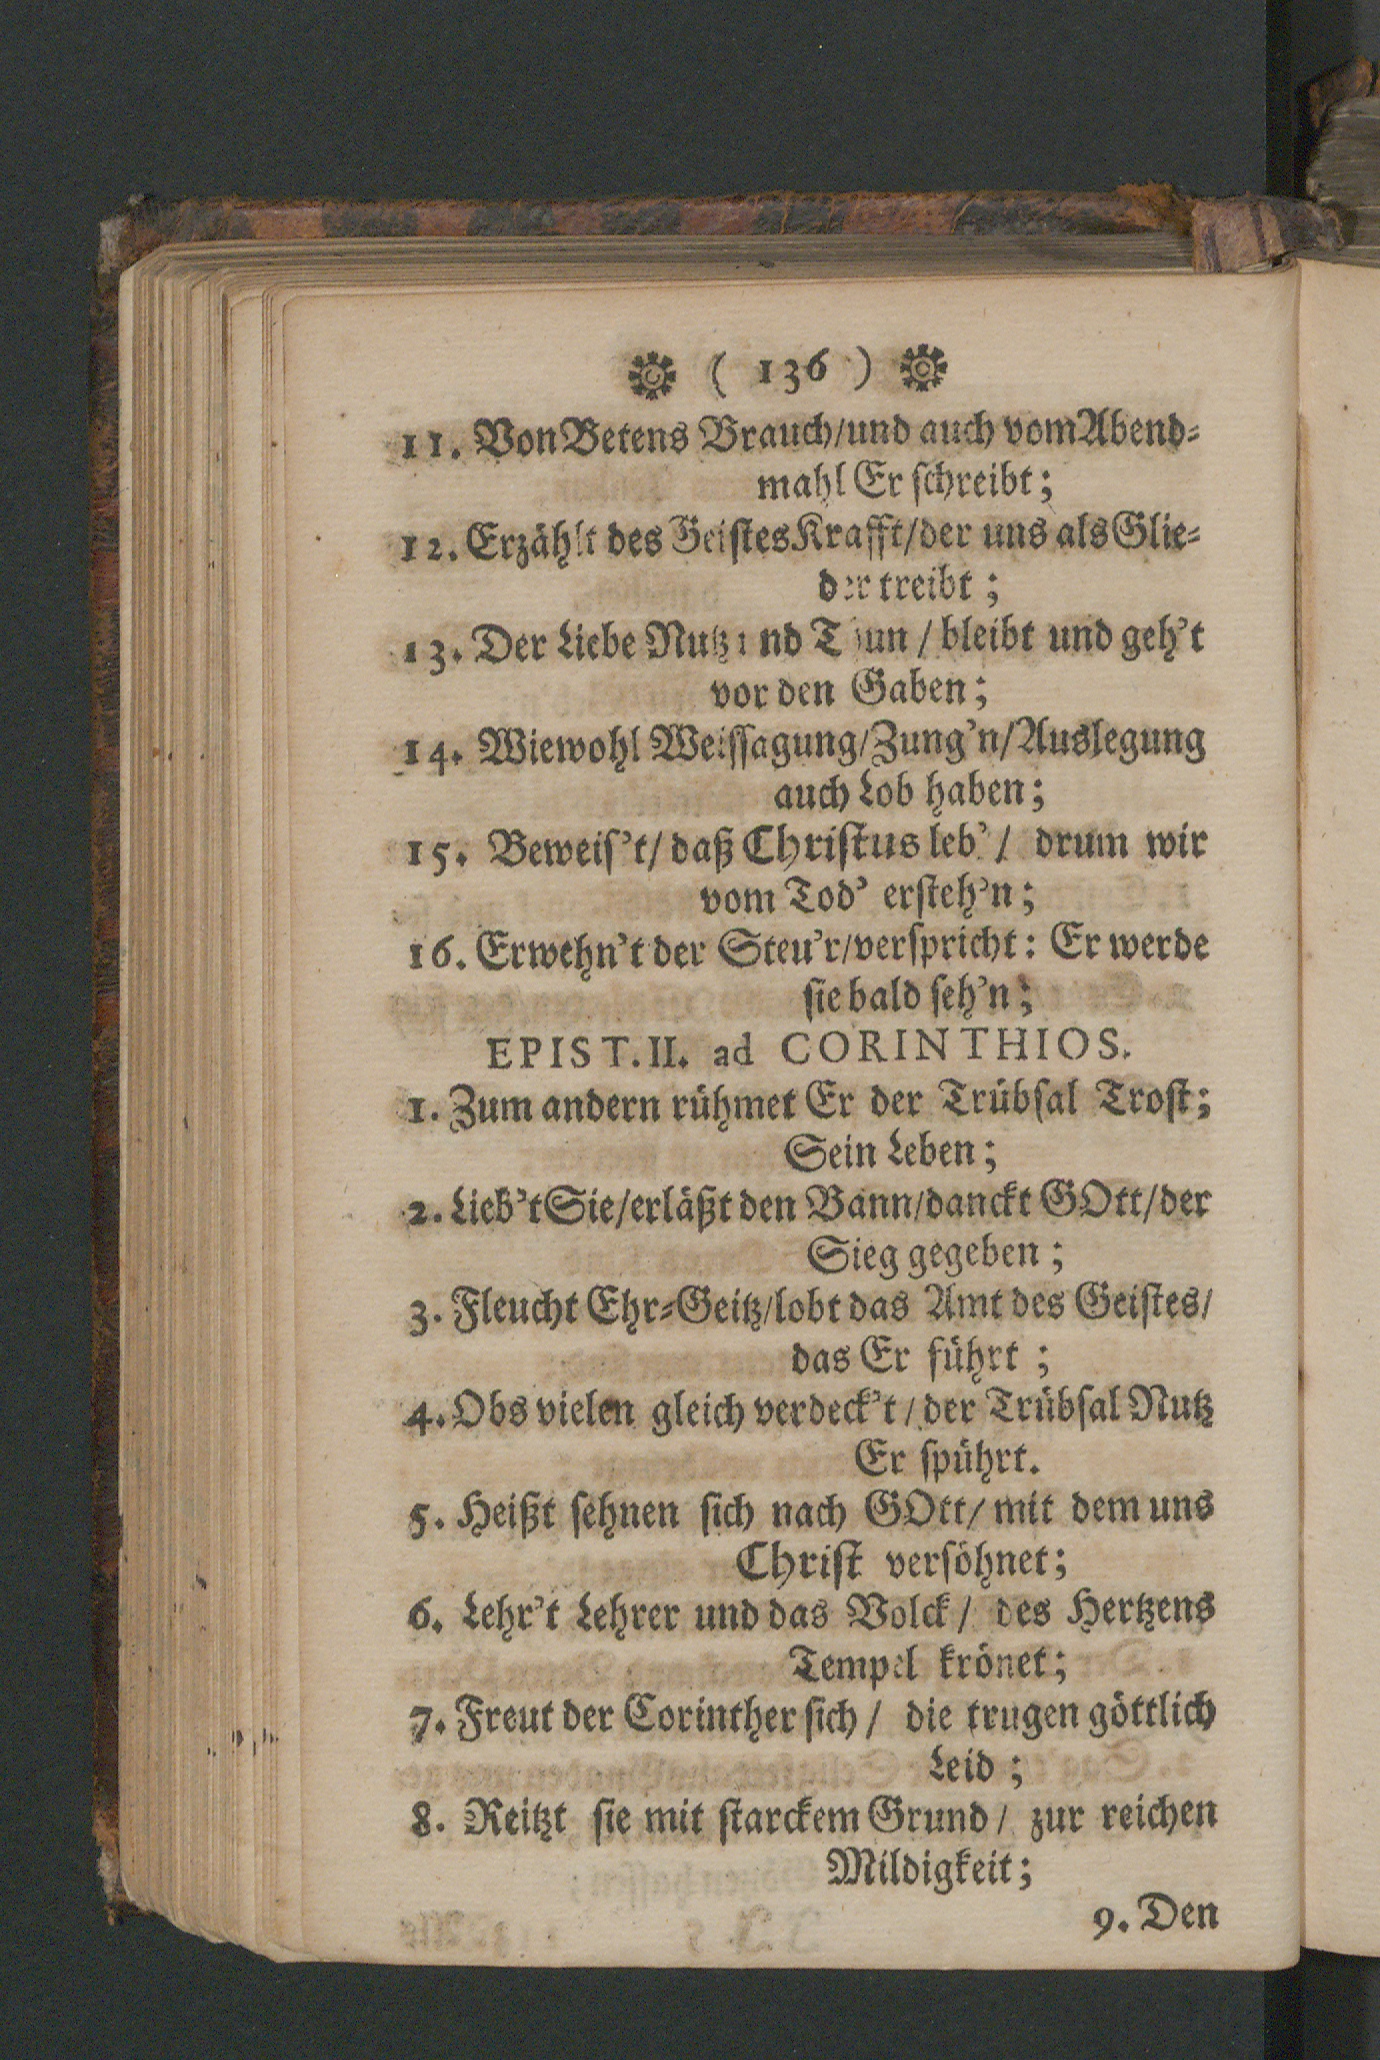 ( 136 )
11. Von Betens Brauch/und auch vom Abend⸗
mahl Er ſchreibt;
12. Erzählt des Geiſtes Krafft/der uns als Glie⸗
der treibt;
13. Der Liebe Nutz und Thun / bleibt und geh't
vor den Gaben;
14. Wiewohl Weiſſagung/Zung'n/Auslegung
auch Lob haben;
15. Beweiſ't/ daß Chriſtus leb' / drum wir
vom Tod' erſteh'n;
16. Erwehn't der Steu'r/verſpricht: Er werde
ſie bald ſeh'n;
EPIST. II. ad CORINTHIOS.
1. Zum andern rühmet Er der Trübſal Troſt;
Sein Leben;
2. Lieb't Sie/erläßt den Bann/danckt GOtt/der
Sieg gegeben;
3. Fleucht Ehr⸗Geitz/lobt das Amt des Geiſtes/
das Er führt;
4. Obs vielen gleich verdeck't / der Trübſal Nutz
Er ſpührt.
5. Heißt ſehnen ſich nach GOtt/ mit dem uns
Chriſt verſöhnet;
6. Lehr't Lehrer und das Volck / des Hertzens
Tempel krönet;
7. Freut der Corinther ſich / die trugen göttlich
Leid;
8. Reitzt ſie mit ſtarckem Grund / zur reichen
Mildigkeit;
9. Den